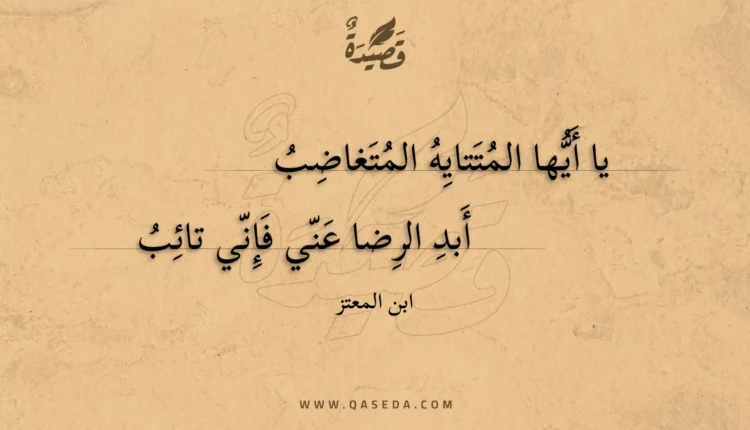 قَصِيدَةٌ
يا أَيُّها المُتَتايِهُ المُتَغاضِبُ
أَبدِ الرِضا عَنّي فَإِنّي تائِبُ
ابن المعتز
WWW.QASEDA.COM